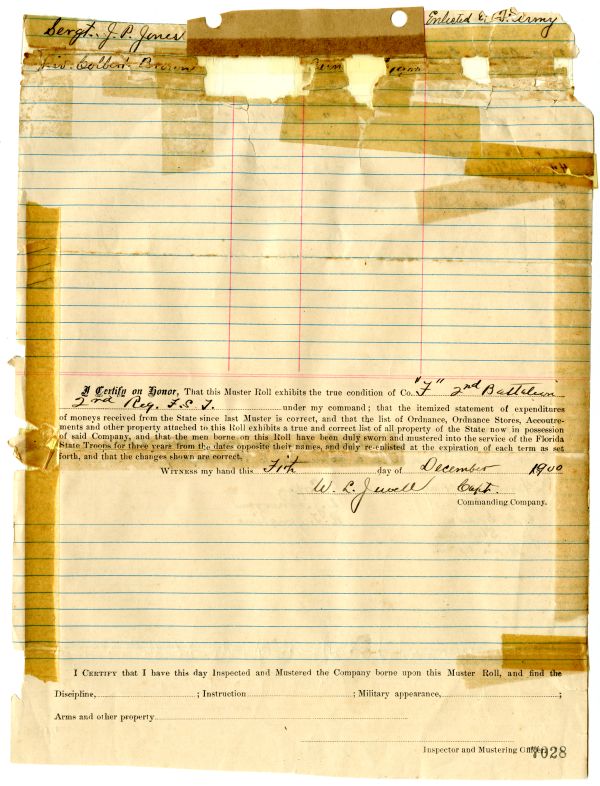 Sergt. J. P. Jones Enlisted U. S. Army
Colbert Brown
I Certify on Honor, That this Muster Roll exhibits the true condition of Co. "F" 2nd Battalion
2nd Reg. F. S. T. under my command; that the itemized statement of expenditures
of moneys received from the State since last Muster is correct, and that the list of Ordnance, Ordnance Stores, Accoutre-
ments and other property attached to this Roll exhibits a true and correct list of all property of the State now in possession
of said Company, and that the men borne on this Roll have been duly sworn and mustered into the service of the Florida
State Troops for three years from the dates opposite their names, and duly re-enlisted at the expiration of each term as set
forth, and that the changes shown are correct.
WITNESS my hand this day of December 1900
W. L. Jewell Capt.
Commanding Company.
I CERTIFY that I have this day Inspected and Mustered the Company borne upon this Muster Roll, and find the
Discipline, ; Instruction ; Military appearance, ;
Arms and other property
Inspector and Mustering Officer.
7028